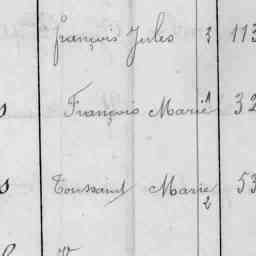 françois Jules 3 113
s François Marie 1 32
s Toussaint Marie 2 53